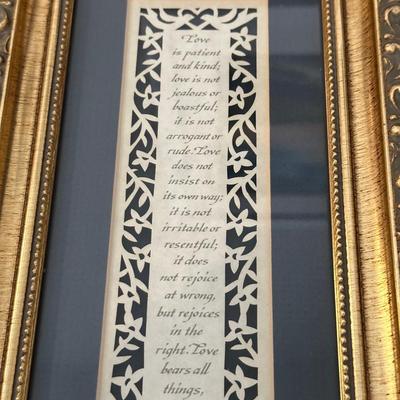 Love
is patient
and kind;
love is not
jealous or
boastful;
it is not
arrogant or
rude. Love
does not
insist on
its own way;
it is not
irritable or
resentful;
it does
not rejoice
at wrong,
but rejoices
in the
right. Love
bears all
things,